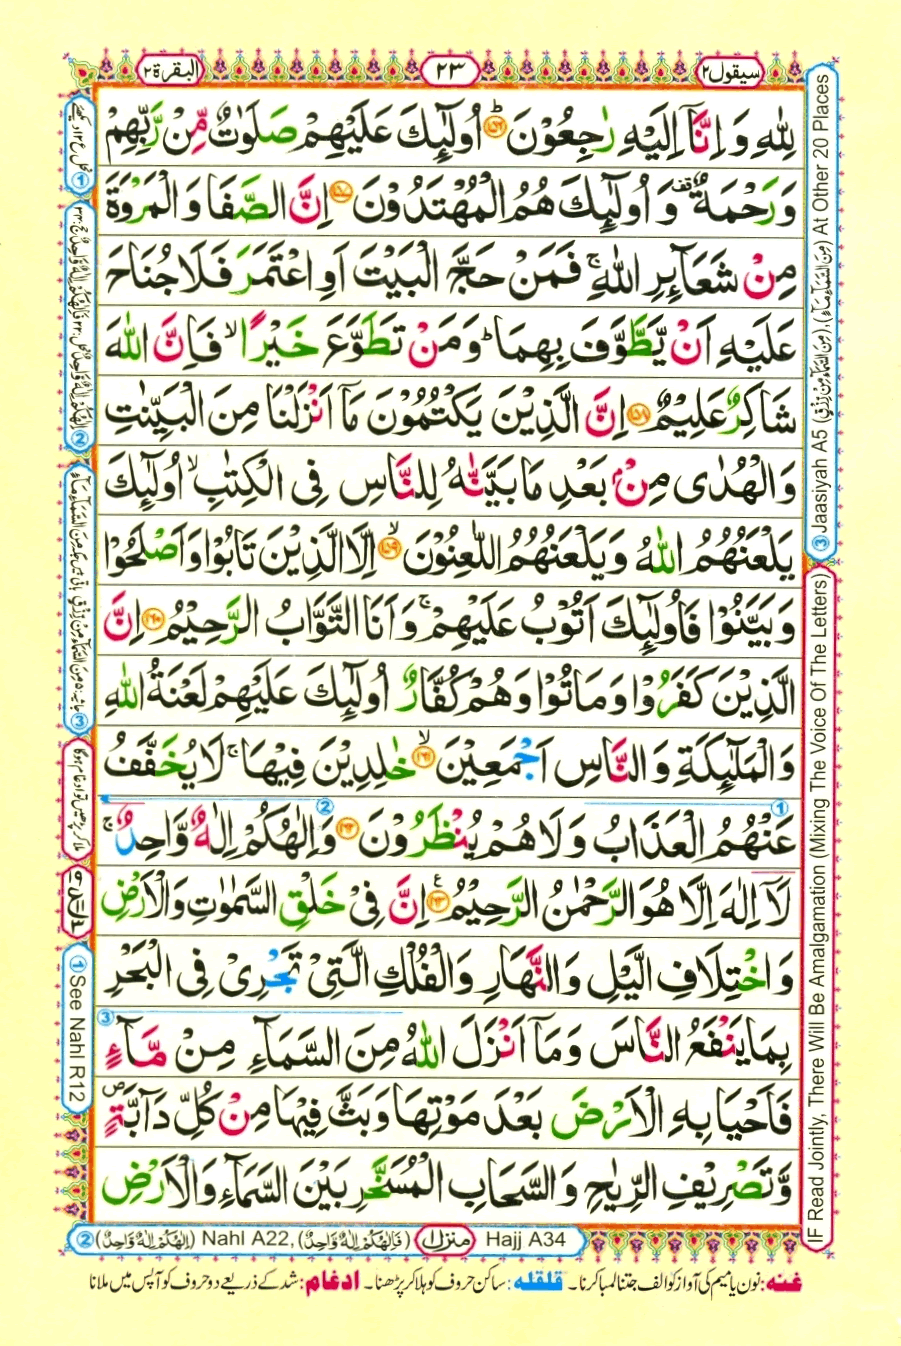 سيقول٢ ٢٣ البقرة٢
لِلّٰهِ وَ اِنَّاۤ اِلَيْهِ رٰجِعُوْنَ ؕ﴿۱۵۶﴾ اُولٰٓئِكَ عَلَيْهِمْ صَلَوٰتٌ مِّنْ رَّبِّهِمْ
وَرَحْمَةٌ ۟ وَ اُولٰٓئِكَ هُمُ الْمُهْتَدُوْنَ ﴿۱۵۷﴾ اِنَّ الصَّفَا وَالْمَرْوَةَ
مِنْ شَعَآئِرِ اللّٰهِ ۚ فَمَنْ حَجَّ الْبَيْتَ اَوِ اعْتَمَرَ فَلَا جُنَاحَ
عَلَيْهِ اَنْ يَّطَّوَّفَ بِهِمَا ؕ وَمَنْ تَطَوَّعَ خَيْرًا ۙ فَاِنَّ اللّٰهَ
شَاكِرٌ عَلِيْمٌ ﴿۱۵۸﴾ اِنَّ الَّذِيْنَ يَكْتُمُوْنَ مَاۤ اَنْزَلْنَا مِنَ الْبَيِّنٰتِ
وَالْهُدٰى مِنْۢ بَعْدِ مَا بَيَّنّٰهُ لِلنَّاسِ فِى الْكِتٰبِ ۙ اُولٰٓئِكَ
يَلْعَنُهُمُ اللّٰهُ وَيَلْعَنُهُمُ اللّٰعِنُوْنَ ۙ﴿۱۵۹﴾ اِلَّا الَّذِيْنَ تَابُوْا وَاَصْلَحُوْا
وَبَيَّنُوْا فَاُولٰٓئِكَ اَتُوْبُ عَلَيْهِمْ ۚ وَاَنَا التَّوَّابُ الرَّحِيْمُ ﴿۱۶۰﴾ اِنَّ
الَّذِيْنَ كَفَرُوْا وَمَاتُوْا وَهُمْ كُفَّارٌ اُولٰٓئِكَ عَلَيْهِمْ لَعْنَةُ اللّٰهِ
وَالْمَلٰٓئِكَةِ وَالنَّاسِ اَجْمَعِيْنَ ۙ﴿۱۶۱﴾ خٰلِدِيْنَ فِيْهَا ۚ لَا يُخَفَّفُ
عَنْهُمُ الْعَذَابُ وَلَا هُمْ يُنْظَرُوْنَ ﴿۱۶۲﴾ وَاِلٰهُكُمْ اِلٰهٌ وَّاحِدٌ ۚ
لَاۤ اِلٰهَ اِلَّا هُوَ الرَّحْمٰنُ الرَّحِيْمُ ﴿۱۶۳﴾ ع اِنَّ فِىْ خَلْقِ السَّمٰوٰتِ وَالْاَرْضِ
وَاخْتِلَافِ الَّيْلِ وَالنَّهَارِ وَالْفُلْكِ الَّتِىْ تَجْرِىْ فِى الْبَحْرِ
بِمَا يَنْفَعُ النَّاسَ وَمَاۤ اَنْزَلَ اللّٰهُ مِنَ السَّمَآءِ مِنْ مَّآءٍ
فَاَحْيَا بِهِ الْاَرْضَ بَعْدَ مَوْتِهَا وَبَثَّ فِيْهَا مِنْ كُلِّ دَآبَّةٍ ۪
وَّتَصْرِيْفِ الرِّيٰحِ وَالسَّحَابِ الْمُسَخَّرِ بَيْنَ السَّمَآءِ وَالْاَرْضِ
③ Jaasiyah A5 (مِنَ السَّمَآءِ مِنْ رِّزْقٍ), (مِنَ السَّمَآءِ مَآءً) At Other 20 Places
IF Read Jointly, There Will Be Amalgamation (Mixing The Voice Of The Letters)
② اِلٰهُكُمْ اِلٰهٌ وَّاحِدٌ
③
ملا کر پڑھیں تو ادغام ہوگا
① See Nahl R12
② (اِلٰهُكُمْ اِلٰهٌ وَّاحِدٌ) Nahl A22, (فَاِلٰهُكُمْ اِلٰهٌ وَّاحِدٌ) منزل١ Hajj A34
غنه: نون یا میم کی آواز کو الف جتنا لمبا کرنا۔ قلقله: ساکن حروف کو ہلا کر پڑھنا۔ ادغام: شد کے ذریعے دو حروف کو آپس میں ملانا